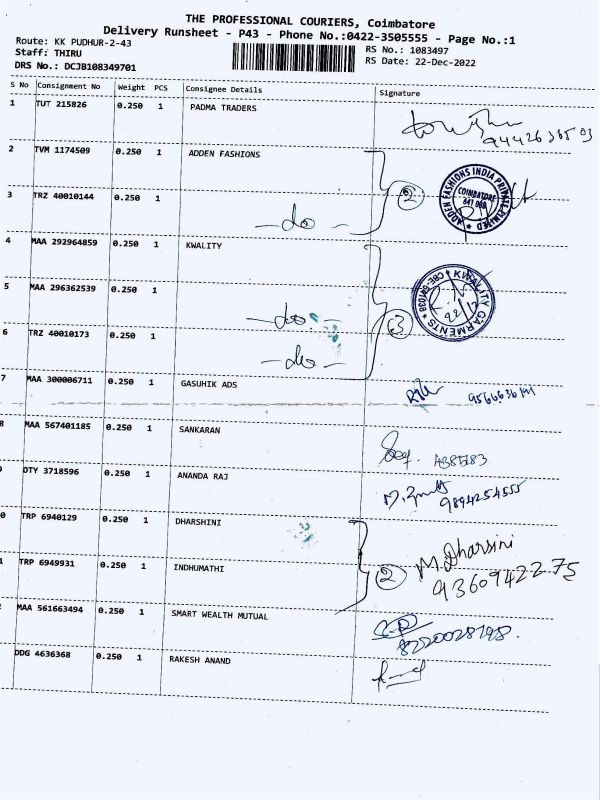 THE PROFESSIONAL COURIERS, Coimbatore
Delivery Runsheet - P43 - Phone No.:0422-3505555 - Page No.:1
Route: KK PUDHUR-2-43
Staff: THIRU
DRS No.: DCJB108349701
RS No.: 1083497
RS Date: 22-Dec-2022
S No Consignment No Weight PCS Consignee Details Signature
1 TUT 215826 0.250 1 PADMA TRADERS
2 TVM 1174509 0.250 1 ADDEN FASHIONS
ADDEN FASHIONS INDIA PRIVATE LIMITED
COIMBATORE
3 TRZ 40010144 0.250 1 -do- 2
4 MAA 292964859 0.250 1 KWALITY
KWALITY GARMENTS
5 MAA 296362539 0.250 1 -do- 3
6 TRZ 40010173 0.250 1 -do-
7 MAA 300006711 0.250 1 GASUHIK ADS
8 MAA 567401185 0.250 1 SANKARAN
DTY 3718596 0.250 1 ANANDA RAJ 9894254555
0 TRP 6940129 0.250 1 DHARSHINI M. Dharsini
1 TRP 6949931 0.250 1 INDHUMATHI 2 9360942275
MAA 561663494 0.250 1 SMART WEALTH MUTUAL
DDG 4636368 0.250 1 RAKESH ANAND